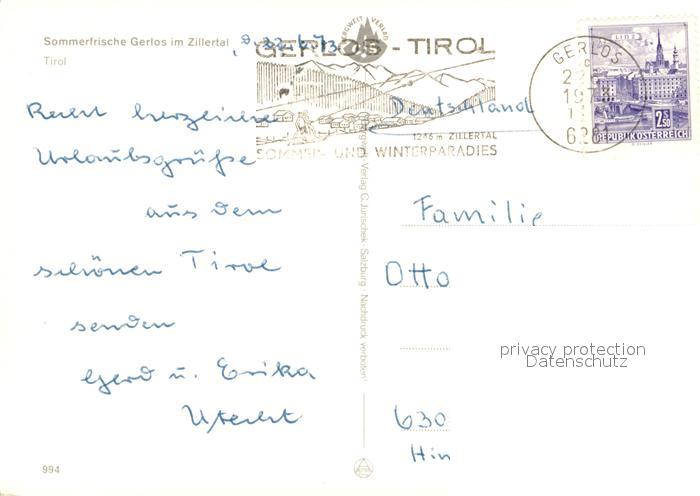 Sommerfrische Gerlos im Zillertal
Tirol
GERLOS - TIROL
1246 m ZILLERTAL
SOMMER- UND WINTERPARADIES
GERLOS
LINZ
2.50
REPUBLIK ÖSTERREICH
Recht herzliche
Urlaubsgrüße
aus dem
schönen Tirol
senden
Gerd u. Erika
Utecht
Deutschland
Familie
Otto
630
Hin
privacy protection
Datenschutz
Verlag C. Jurischek, Salzburg · Nachdruck verboten!
994